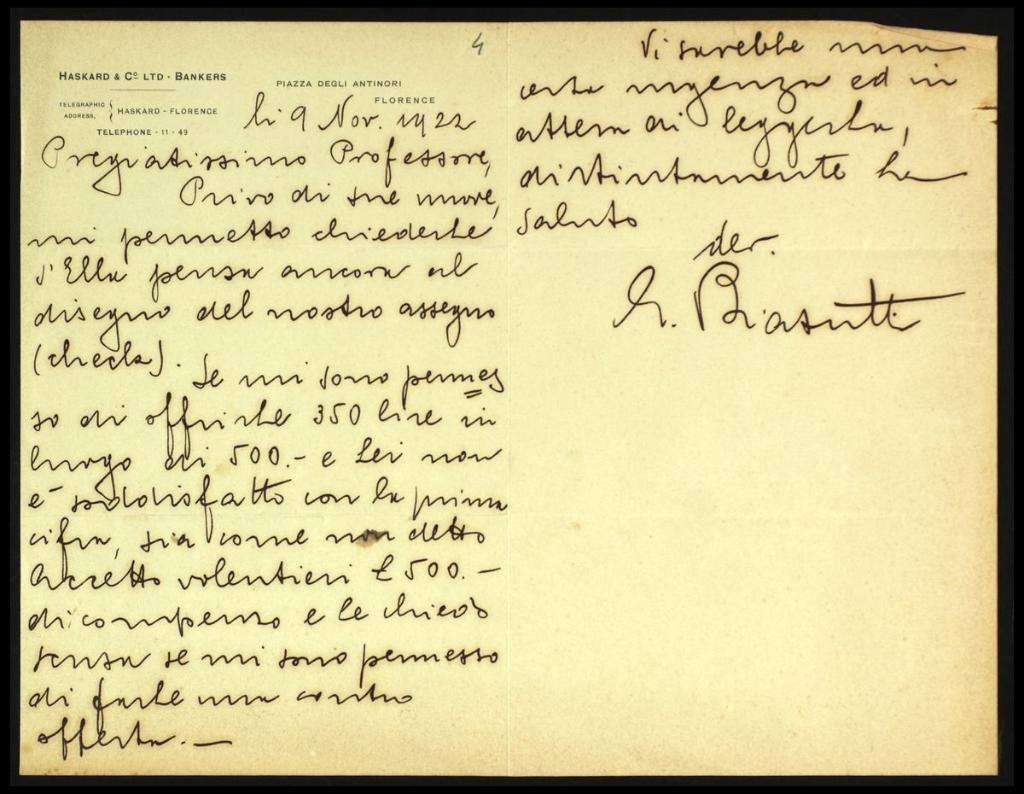 4
HASKARD & Cº LTD - BANKERS
TELEGRAPHIC ADDRESS, } HASKARD - FLORENCE
TELEPHONE - 11 - 49
PIAZZA DEGLI ANTINORI
FLORENCE
li 9 Nov. 1922
Pregiatissimo Professore,
Privo di sue nuove,
mi permetto chiederle
s'Ella pensa ancora al
disegno del nostro assegno
(check).
Se mi sono permes
so di offrirle 350 lire in
luogo di 500.- e Lei non
è soddisfatto con la prima
cifra, sia come non detto
Accetto volentieri £ 500.-
di compenso e le chiedo
scusa se mi sono permesso
di farle una contro
offerta. —
Vi sarebbe una
certa urgenza ed in
attesa di leggerla,
distintamente la
saluto
dev.
G. Biasutti